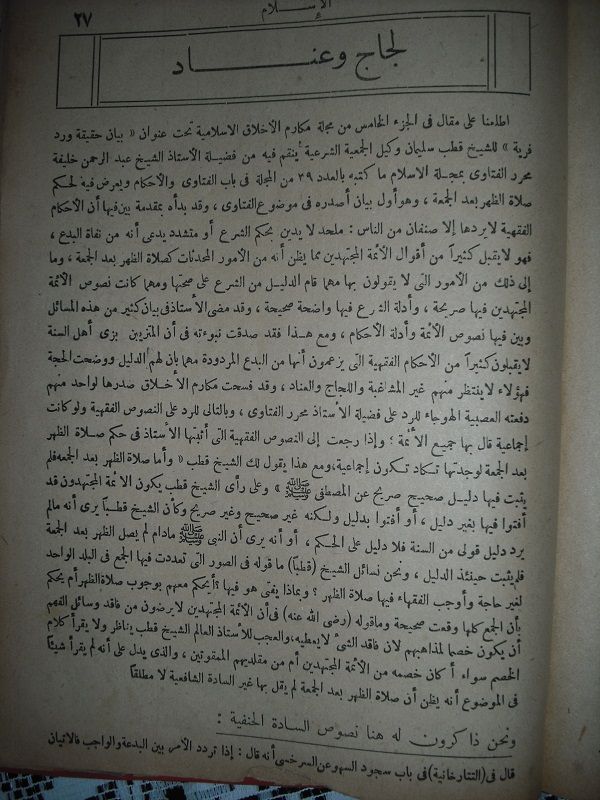 الإسلام
٢٧
لجاج وعنــاد
اطلعنا على مقال فى الجزء الخامس من مجلة مكارم الأخلاق الاسلامية تحت عنوان « بيان حقيقة ورد
فرية » للشيخ قطب سليمان وكيل الجمعية الشرعية ينقم فيه من فضيلة الأستاذ الشيخ عبد الرحمن خليفة
محرر الفتاوى بمجلة الاسلام ما كتبه بالعدد ٣٩ من المجلة فى باب الفتاوى والأحكام ويعرض فيه لحكم
صلاة الظهر بعد الجمعة ، وهو أول بيان أصدره فى موضوع الفتاوى ، وقد بدأه بمقدمة بين فيها أن الأحكام
الفقهية لا يردها إلا صنفان من الناس : ملحد لا يدين بحكم الشرع أو متشدد يدعى أنه من نفاة البدع ،
فهو لا يقبل كثيراً من أقوال الأئمة المجتهدين مما يظن أنه من الأمور المحدثات كصلاة الظهر بعد الجمعة ، وما
إلى ذلك من الأمور التى لا يقولون بها مهما قام الدليل من الشرع على صحتها ومهما كانت نصوص الأئمة
المجتهدين فيها صريحة ، وأدلة الشرع فيها واضحة صحيحة ، وقد مضى الأستاذ فى بيان كثير من هذه المسائل
وبين فيها نصوص الأئمة وأدلة الأحكام ، ومع هــذا فقد صدقت نبوءته فى أن المتزيين بزى أهل السنة
لا يقبلون كثيراً من الأحكام الفقهية التى يزعمون أنها من البدع المردودة مهما بان لهم الدليل ووضحت الحجة
فهؤلاء لا ينتظر منهم غير المشاغبة واللجاج والعناد ، وقد فسحت مكارم الأخــلاق صدرها لواحد منهم
دفعته العصبية الهوجاء للرد على فضيلة الأستاذ محرر الفتاوى ، وبالتالى للرد على النصوص الفقهية ولو كانت
إجماعية قال بها جميع الأئمة ؛ وإذا رجعت إلى النصوص الفقهية التى أثبتها الأستاذ فى حكم صلاة الظهر
بعد الجمعة لوجدتها تكاد تكون إجماعية ، ومع هذا يقول لك الشيخ قطب « وأما صلاة الظهر بعد الجمعه فلم
يثبت فيها دليل صحيح صريح عن المصطفى ﷺ » وعلى رأى الشيخ قطب يكون الأئمة المجتهدون قد
أفتوا فيها بغير دليل ، أو أفتوا بدليل ولكنه غير صحيح وغير صريح وكأن الشيخ قطباً يرى أنه مالم
يرد دليل قولى من السنة فلا دليل على الحكم ، أو أنه يرى أن النبى ﷺ مادام لم يصل الظهر بعد الجمعة
فلم يثبت حينئذ الدليل ، ونحن نسائل الشيخ (قطباً) ما قوله فى الصور التى تعددت فيها الجمع فى البلد الواحد
لغير حاجة وأوجب الفقهاء فيها صلاة الظهر ؟ وبماذا يفتى هو فيها ؟ أيحكم معهم بوجوب صلاة الظهر أم يحكم
بأن الجمع كلها وقعت صحيحة وما قوله (رضى الله عنه) فى أن الأئمة المجتهدين لا يرضون من فاقد وسائل الفهم
أن يكون خصما لمذاهبهم لان فاقد الشىء لا يعطيه ، والعجب للأستاذ العالم الشيخ قطب يناظر ولا يقرأ كلام
الخصم سواء أكان خصمه من الأئمة المجتهدين أم من مقلديهم الممقوتين ، والذى يدل على أنه لم يقرأ شيئاً
فى الموضوع أنه يظن أن صلاة الظهر بعد الجمعة لم يقل بها غير السادة الشافعية لا مطلقاً
ونحن ذاكرون له هنا نصوص السادة الحنفية :
قال فى (التتارخانية) فى باب سجود السهو عن السرخسى أنه قال : إذا تردد الأمر بين البدعة والواجب فالاتيان